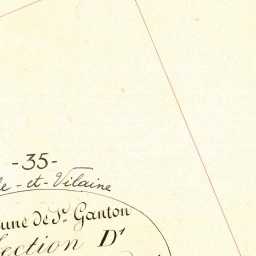 -35-
le-et-Vilaine
une de St. Ganton
ection D'